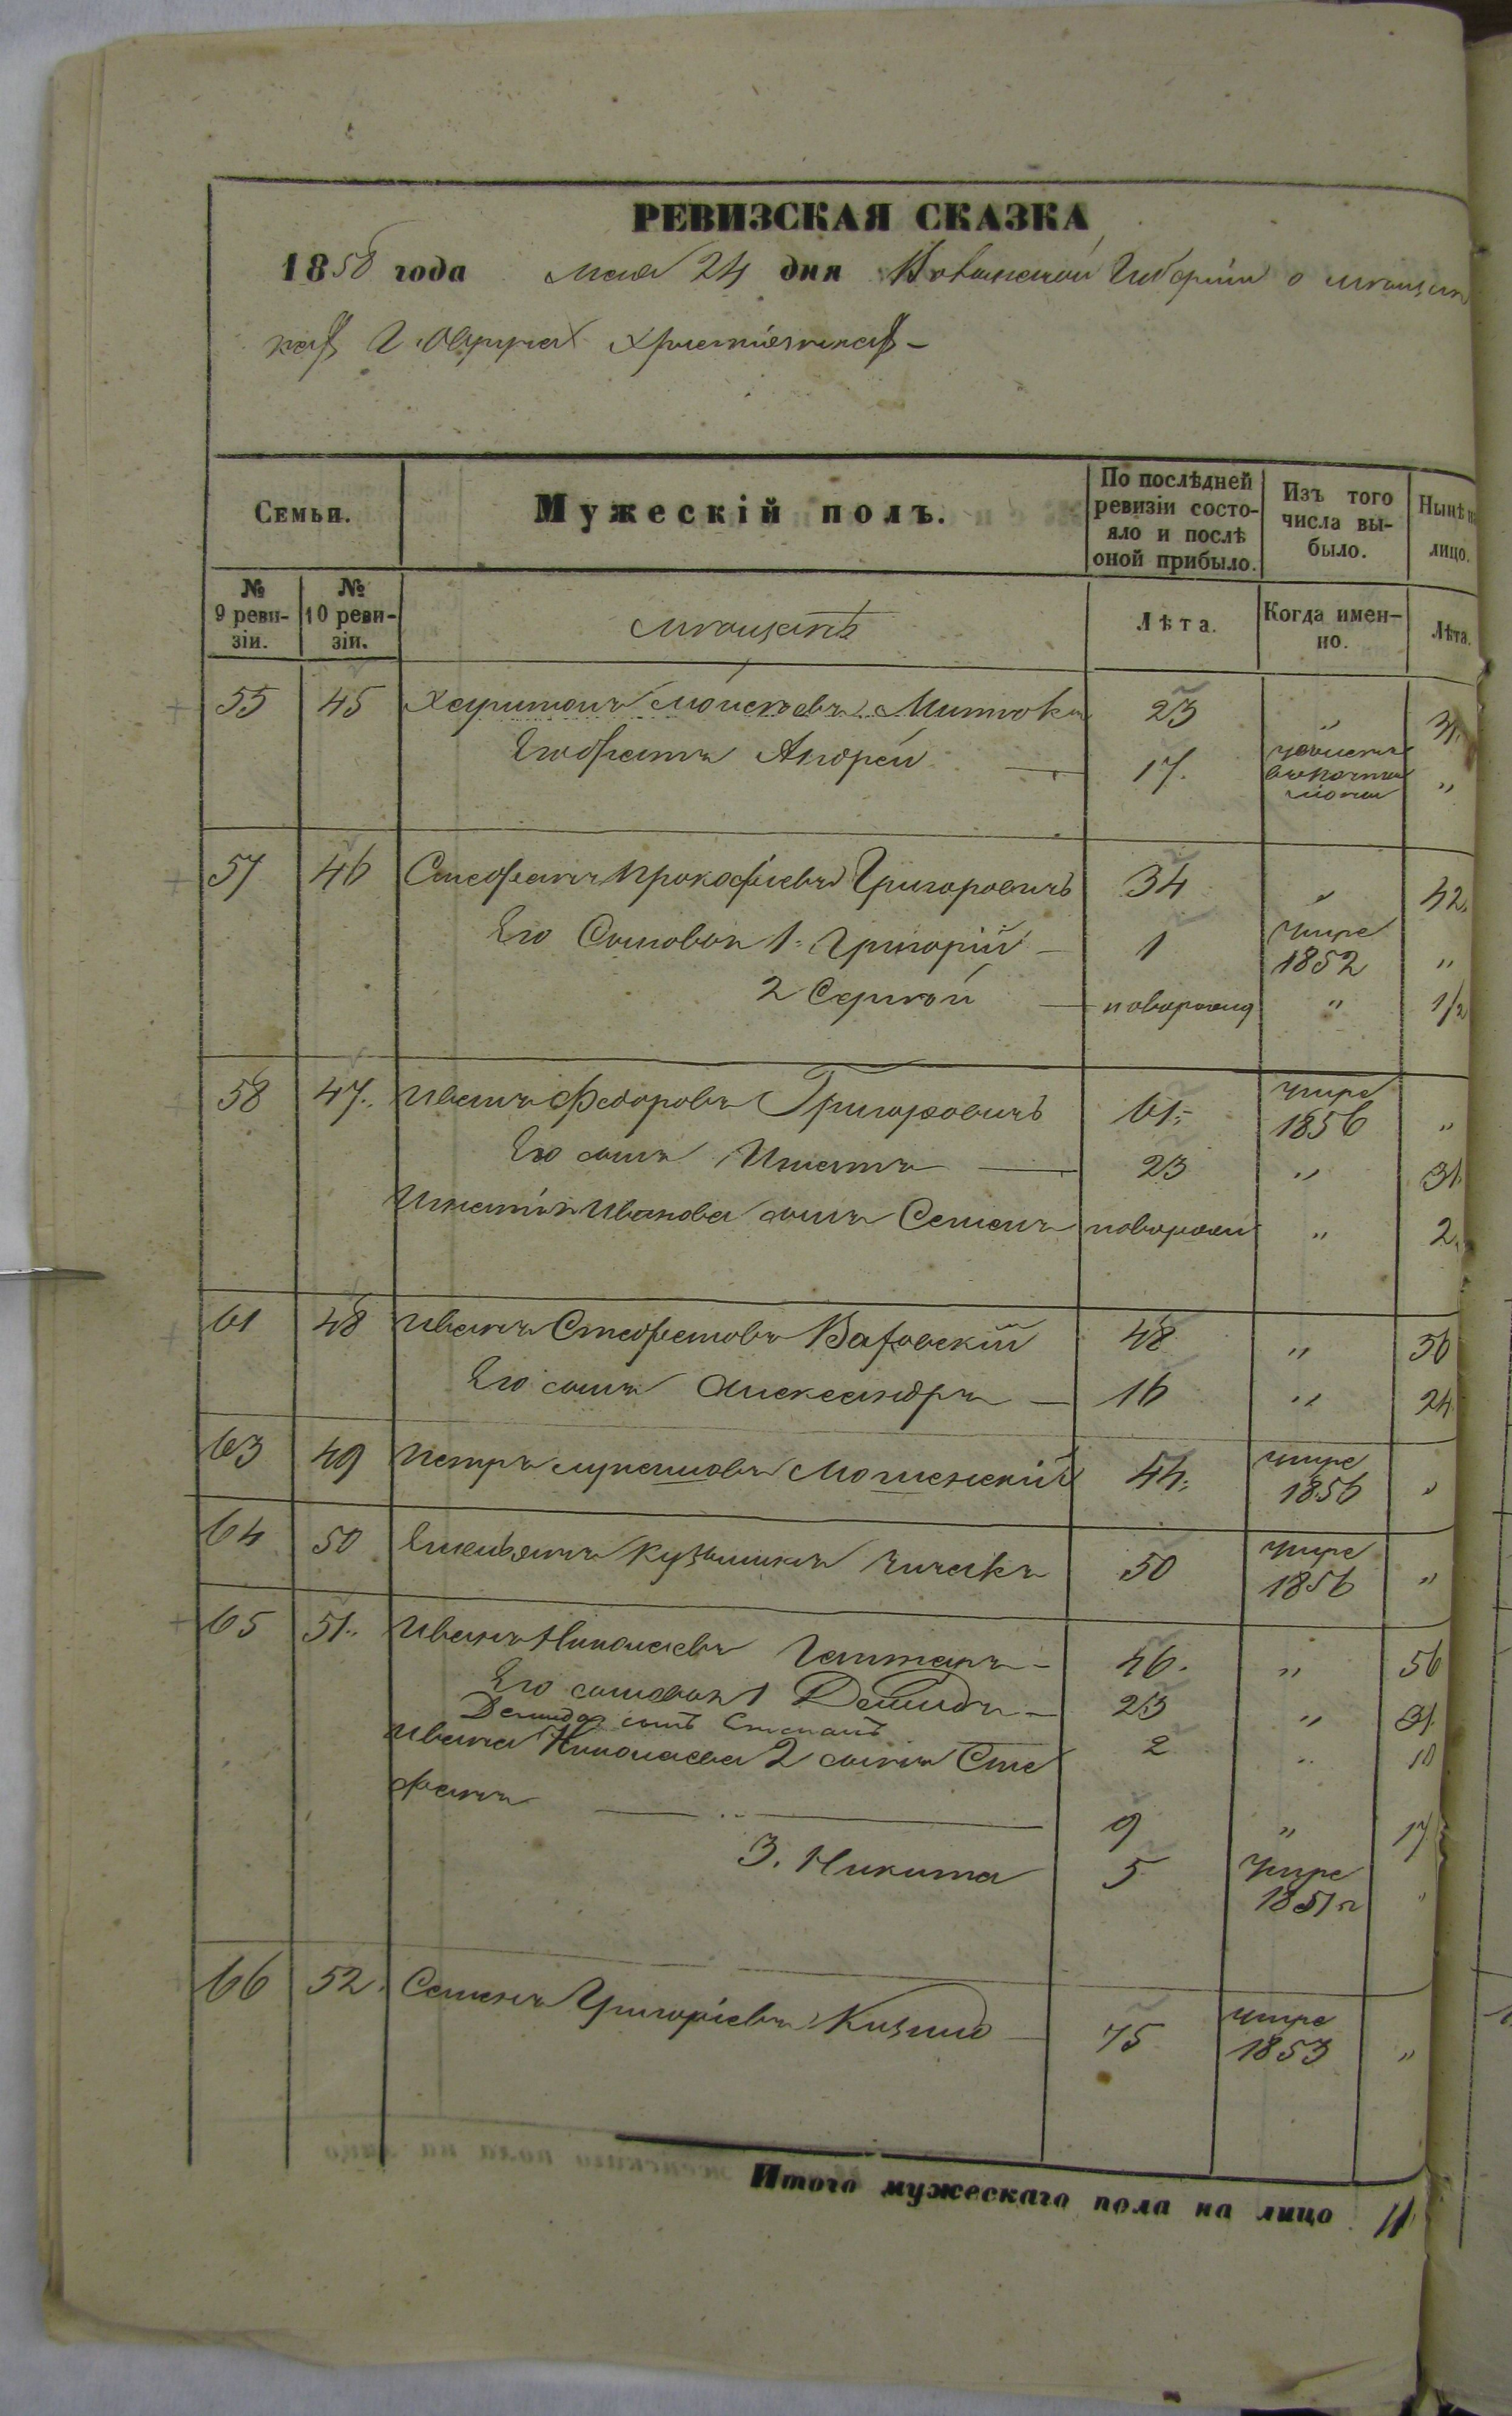 РЕВИЗСКАЯ СКАЗКА
1858 года мая 24 дня Ковенской Губерніи о мещан
кахъ г. христіанахъ –
Семьи.
Мужескій полъ.
По послѣдней ревизіи состо-
яло и послѣ оной прибыло.
Изъ того числа вы-
было.
Нынѣ на лицо.
№ 9 реви-
зіи.
№ 10 реви-
зіи.
мещанъ
Лѣта.
Когда имен-
но.
Лѣта.
55 45 Харитонъ Моисеевъ 23 „ 31.
Его братъ Андрей — 17. „
57 46 Стефанъ Прокофіевъ Григоровичъ 34 „ 42.
Его Сыновья 1. Григорій – 1 умре 1852 „
2 Сергей — новорожд „ 1/2
58 47. Иванъ Федоровъ Григоровичъ 61. умре 1856 „
Его сынъ Игнатъ — 23 „ 31.
Игнатія Иванова сынъ Семенъ новорожд „ 2.
61 48 Иванъ Стефановъ 48 „ 56
Его сынъ Александръ — 16 „ 24
63 49 Петръ 44. умре 1856 „
64 50 Емельянъ Кузьминъ 50 умре 1856 „
65 51. Иванъ Николаевъ – 46. „ 56
Его сыновья 1 Демидъ – 23 „ 31.
Демида сынъ Степанъ 2 „ 10
Ивана Николаева 2 сынъ Сте
фанъ — 9 „ 17
3. Никита 5 умре 1851 „
66 52. Семенъ Григоріевъ – 75 умре 1853 „
Итого мужескаго пола на лицо 11